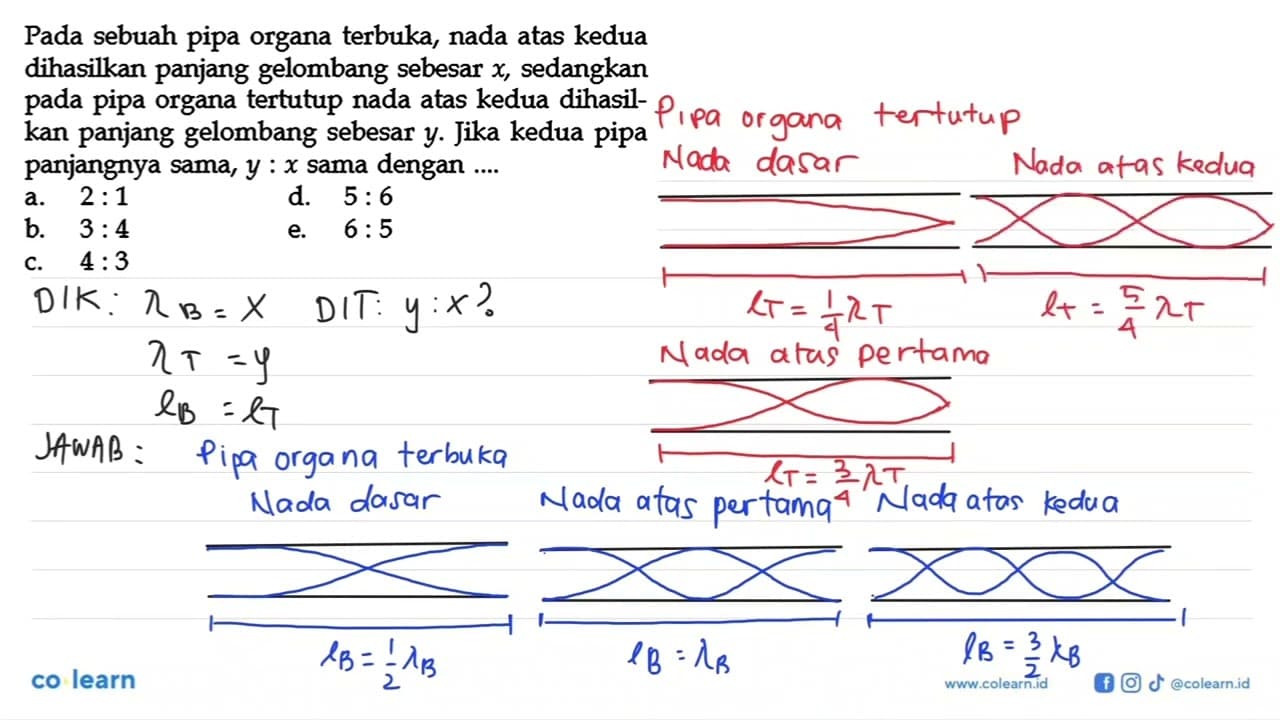 Pada sebuah pipa organa terbuka, nada atas kedua
dihasilkan panjang gelombang sebesar x, sedangkan
pada pipa organa tertutup nada atas kedua dihasil-
kan panjang gelombang sebesar y. Jika kedua pipa
panjangnya sama, y : x sama dengan ....
a. 2 : 1 d. 5 : 6
b. 3 : 4 e. 6 : 5
c. 4 : 3
DIK: λB = x DIT: y : x?
λT = y
lB = lT
Pipa organa tertutup
Nada dasar Nada atas kedua
lT = 1/4 λT lT = 5/4 λT
Nada atas pertama
lT = 3/4 λT
JAWAB: Pipa organa terbuka
Nada dasar Nada atas pertama Nada atas kedua
lB = 1/2 λB lB = λB lB = 3/2 λB
co learn
www.colearn.id @colearn.id